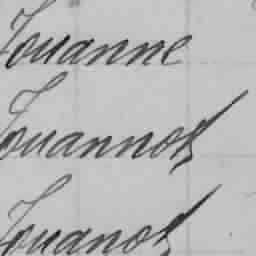 Jouanne
Jouannot
Jouanot